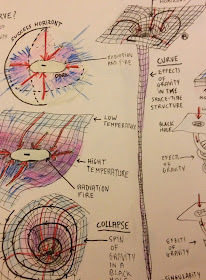 RVE?
SUCCESS HORIZONT
RADIATION
AND FIRE
CURVE
EFFECTS
OF GRAVITY
IN THE
SPACE-TIM
STRUCTURE
LOW
TEMPERATURE
BLACK
HOLE
HIGHT
TEMPERATURE
OF GRAVITY
RADIATION
FIRE
COLLAPSE
SPIN
OF
GRAVITY
IN A
BLACK
EFFECTS OF
GRAVITY
SINGULARITY